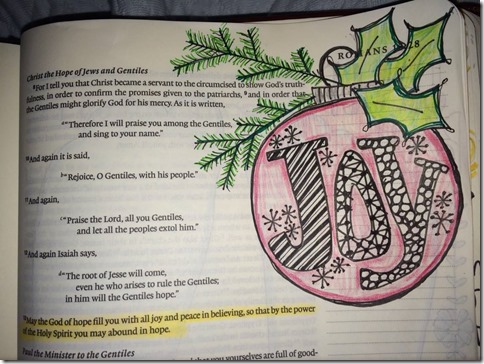 ROMANS 8
Christ the Hope of Jews and Gentiles
8 For I tell you that Christ became a servant to the circumcised to show God's truth-
fulness, in order to confirm the promises given to the patriarchs, 9 and in order that
the Gentiles might glorify God for his mercy. As it is written,
a "Therefore I will praise you among the Gentiles,
and sing to your name."
10 And again it is said,
b "Rejoice, O Gentiles, with his people."
11 And again,
c "Praise the Lord, all you Gentiles,
and let all the peoples extol him."
12 And again Isaiah says,
d "The root of Jesse will come,
even he who arises to rule the Gentiles;
in him will the Gentiles hope."
13 May the God of hope fill you with all joy and peace in believing, so that by the power
of the Holy Spirit you may abound in hope.
Paul the Minister to the Gentiles
that you yourselves are full of good-
JOY